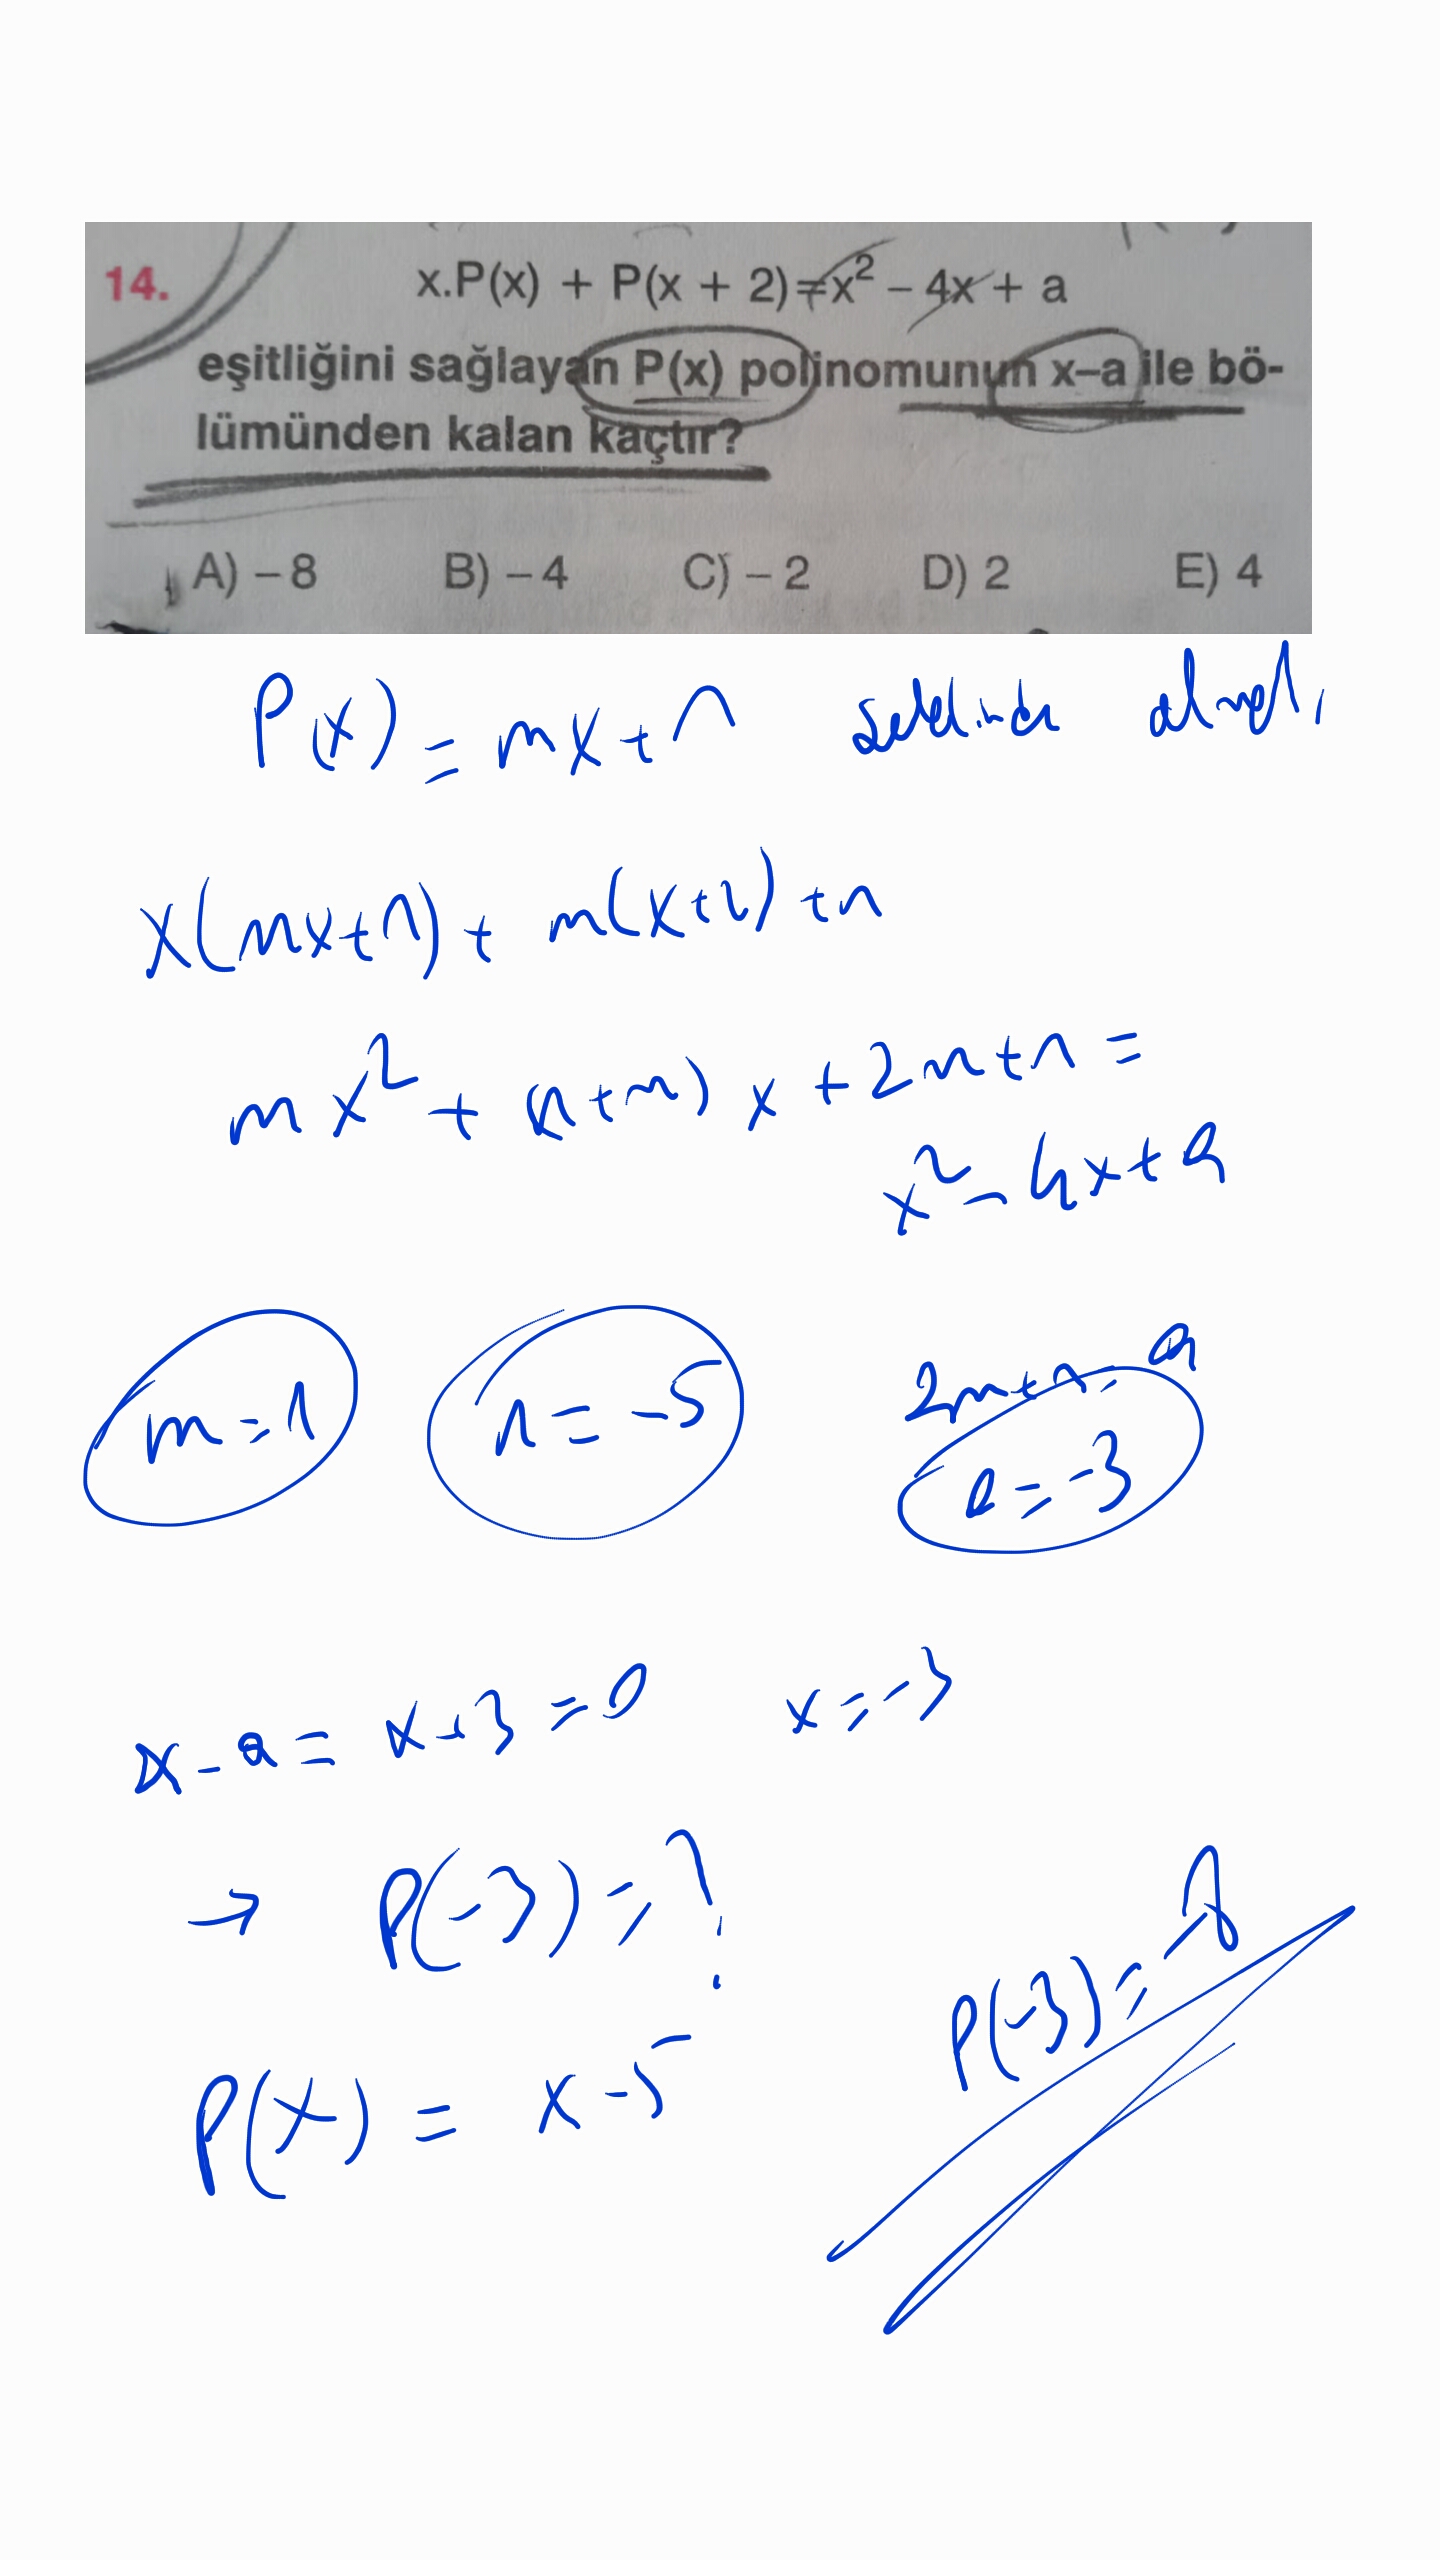 14. x.P(x) + P(x + 2) = x² – 4x + a
eşitliğini sağlayan P(x) polinomunun x–a ile bö-
lümünden kalan kaçtır?
A) – 8 B) – 4 C) – 2 D) 2 E) 4
P(x) = mx + n
x(mx+n) + m(x+2) + n
mx² + (n+m) x + 2m + n =
x² – 4x + a
m = 1 n = -5 2m + n = a
a = -3
x - a = x + 3 = 0 x = -3
→ P(-3) = ?
P(-3) = -8
P(x) = x - 5